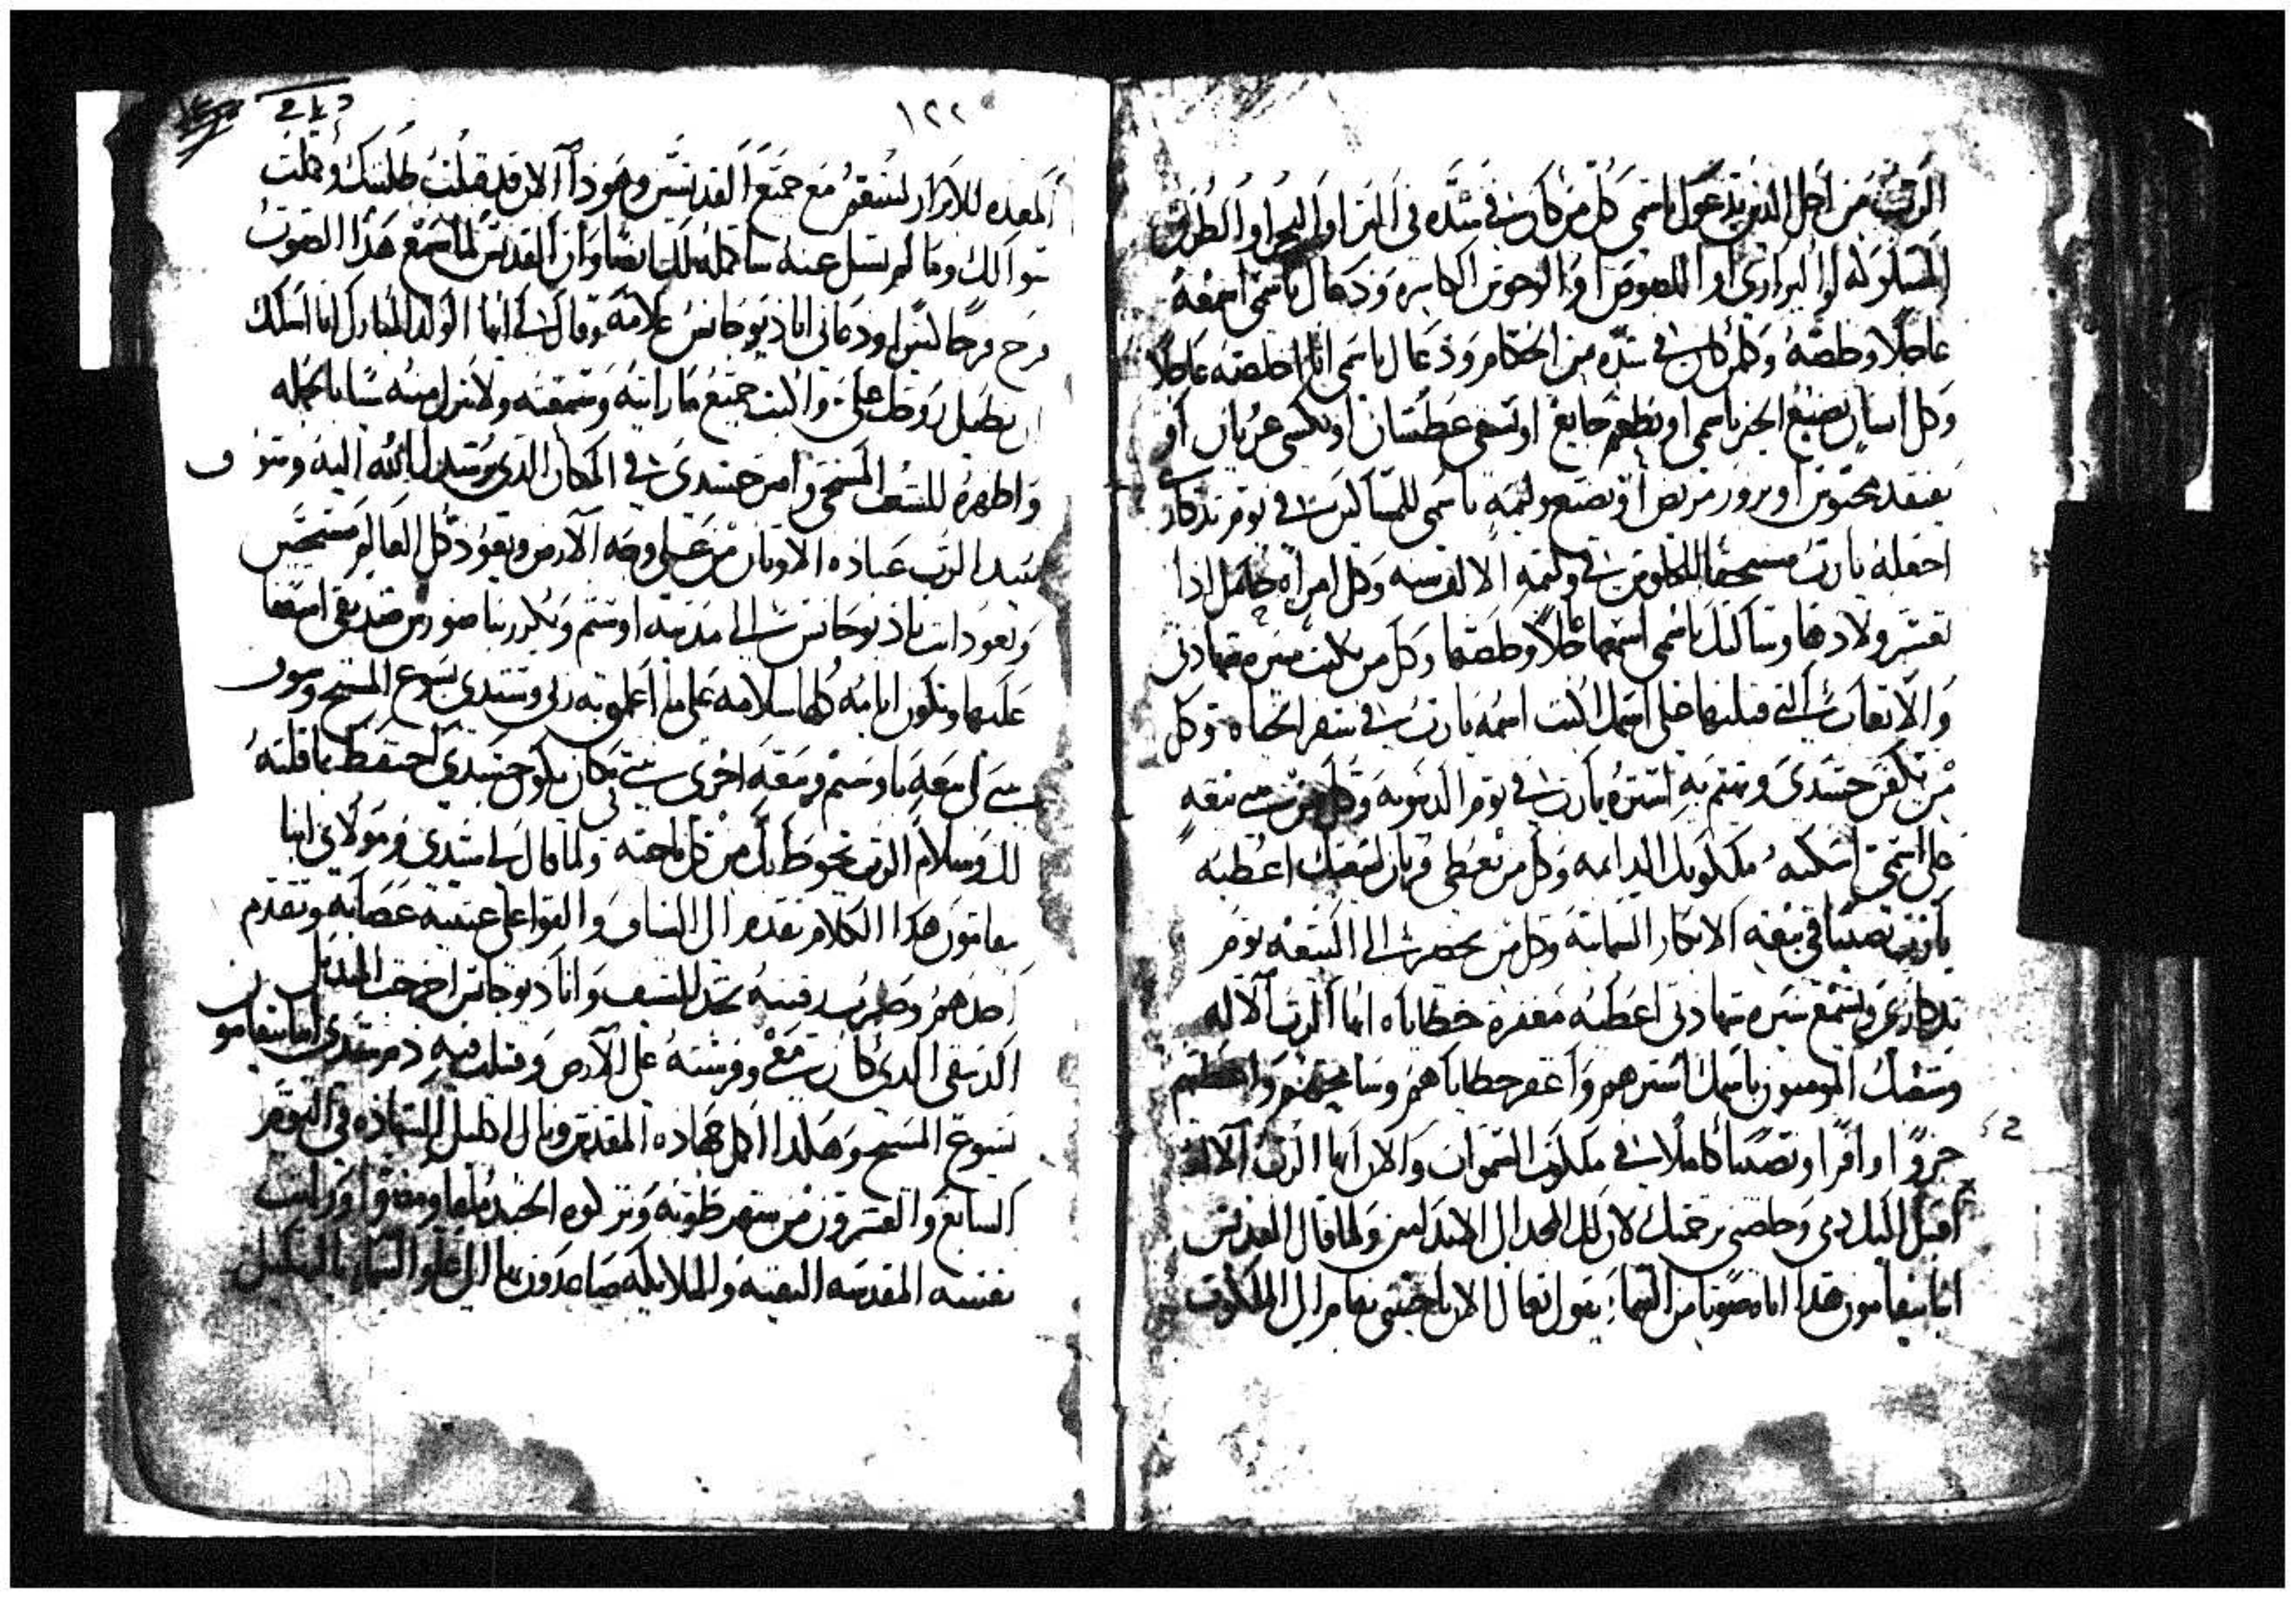 الرب من اجل الذين يدعون باسمى كل من كان فى شده فى البر او البحر او الطرق
المسلوكه او البرارى او اللصوص او الوحوش الكاسره ودعاك باسمى اسمعه
عاجلا وخلصه وكلمن كان فى شده من الحكام ودعاك باسمى انا خلصه عاجلا
وكل انسان يصنع الخير باسمى او يطعم جايع او يسقى عطشان او يكسى عريان او
يفتقد محبوس او يزور مريض او يصنع وليمه باسمى للمساكين فى يوم تذكارى
اجعله يارب مستحقا للجلوس فى وليمه الالف سنه وكل امراه حامل اذا
تعسر ولادها وسالتك باسمى اسمعها عاجلا وخلصها وكل من يكتب سيره شهادتى
والاتعاب التى قبلتها على اسمك اكتب اسمه يارب فى سفر الحياه وكل
من يكفن جسدى ويهتم به استره يارب فى يوم الدينونه وكل من بنى بيعه
على اسمى اسكنه ملكوتك الدايمه وكل من يعطى قربان لبيعتك اعطيه
يارب نصيبا فى بيعه الابكار السمايه وكل من يحضر الى البيعه يوم
تذكارى ويسمع سيره شهادتى اعطيه مغفرة خطاياه ايها الرب الاله
وشعبك المومنون باسمك استرهم واغفر خطاياهم وسامحهم واعطيهم
جزوا وافرا ونصيبا كاملا فى ملكوت السموات والان ايها الرب الاله
اقبل اليك دمى وخلصنى برحمتك لان لك المجد الى الابد امين ولما قال القديس
انبا بيفامون هذا اتاه صوتا من السماء يقول تعال الان ياحبيبى بيفام الى الملكوت
١٢٢
المعده للابرار لتتنعم مع جميع القديسين وهوذا الان قد قبلت طلبتك وكملت
سوالك وما لم تسل عنه ساكمله لك ايضا وان القديس لما سمع هذا الصوت
فرح فرحا كثيرا ودعانى انا ديوجانس غلامه وقال لى ايها الولد المبارك انا اسلك
ان تطيل روحك على واكتب جميع ما رايته وسمعته ولا تترك منه شيا بالجمله
واظهره للشعب المسيحى وامن جسدى فى المكان الذى يرشدك الله اليه وسوف
يبيد الرب عباده الاوثان من على وجه الارض ويعود كل العالم مسيحيين
وتعود انت يا ديوجانس الى مدينه اوسيم
عليها وتكون ايامه كلها سلامه على ما اعلمنى به ربى وسيدى يسوع المسيح وسوف
يبنى لى بيعه باوسيم وبيعه اخرى فى مكان يكون جسدى احتفظ بما قلته
لك وسلام الرب تحوط بك من كل ناحيه ولما قال لى سيدى ومولاى انبا
بيفامون هذا الكلام تقدم الى السياف والقوا على عينيه عصابه وتقدم
احدهم وضرب رقبته بحد السيف وانا ديوجانس اخرجت المنديل
الدبيقى الذى كان معى وفرشته على الارض وقبلت فيه دم سيدى انبا بيفامون
يسوع المسيح وهكذا اكمل جهاده المقدس ونال اكليل الشهاده فى اليوم
السابع والعشرون من شهر طوبه وتركوه الجند ومضوا ورايت
نفسه المقدسه النقيه والملايكه صاعدون بها الى علو السماء بالتهليل